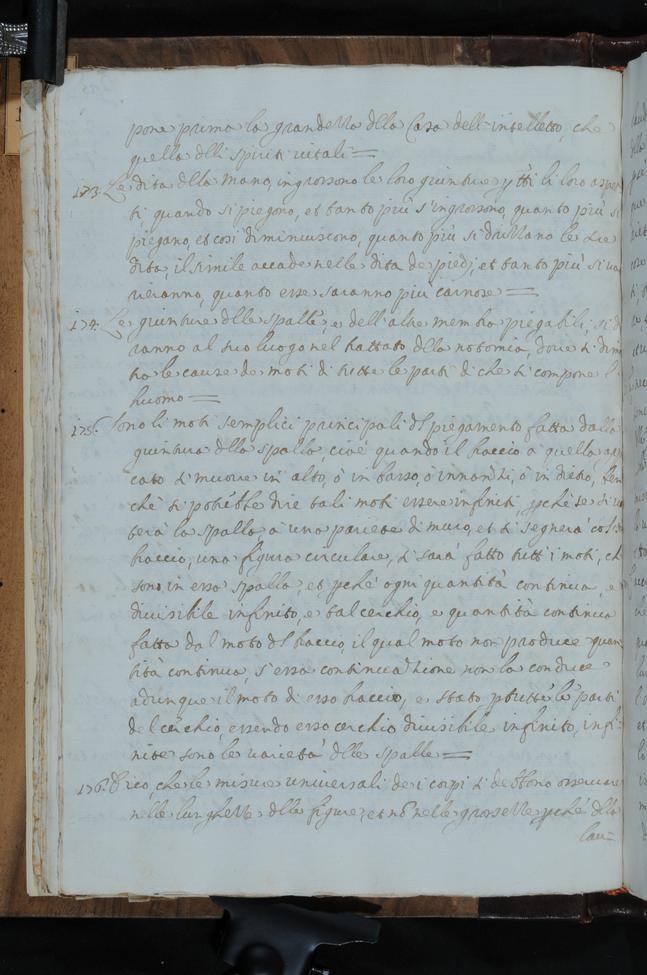 pone prima la grandezza dlla Casa dell' intelletto, che
quella dlli spiriti vitali =
173. Le dita dlla mano, ingrossono le loro giunture p tti li loro aspet
ti, quando si piegono, et tanto più s'ingrossono, quanto più si
piegano, et così diminuiscono, quanto più si drizzano le
dita, il simile accade nelle dita de piedi, et tanto più si va
rieranno, quanto esse saranno più carnose =
174. Le giunture dlle spalle, e dell'altre membra piegabili, si d
ranno al suo luogo nel trattato dlla notomia, dove si dimo
tra le cause de moti di tutte le parti di che si compone l'
huomo =
175. Sono li moti semplici principali dl piegamento fatto dalla
giuntura dlla spalla cioè quando il braccio a quella ap
cato si muove in alto, ò in basso, ò innanzi, ò in dietro, ben
chè si potrebbe dire tali moti essere infiniti, pchè se si v
terà la spalla, a una pariete di muro, et si segnerà col s
braccio, una figura circulare, si sarà fatto tutti i moti, ch
sono in essa spalla, et pchè ogni quantità continua, e
divisibile infinito, e tal cerchio, e quantità continua
fatta dal moto dl braccio, il qual moto non produce quan
tità continua, s'essa continuazione non la conduce
adunque il moto di esso braccio, e stato p tutte le parti
del cerchio, essendo esso cerchio divisibile infinito, infi
nite sono le varietà dlle spalle =
176. Dico, che le misure universali de i corpi si debbono osservare
nelle lunghezze dlle figure, et nò nelle grossezze, pchè dlle
lau=